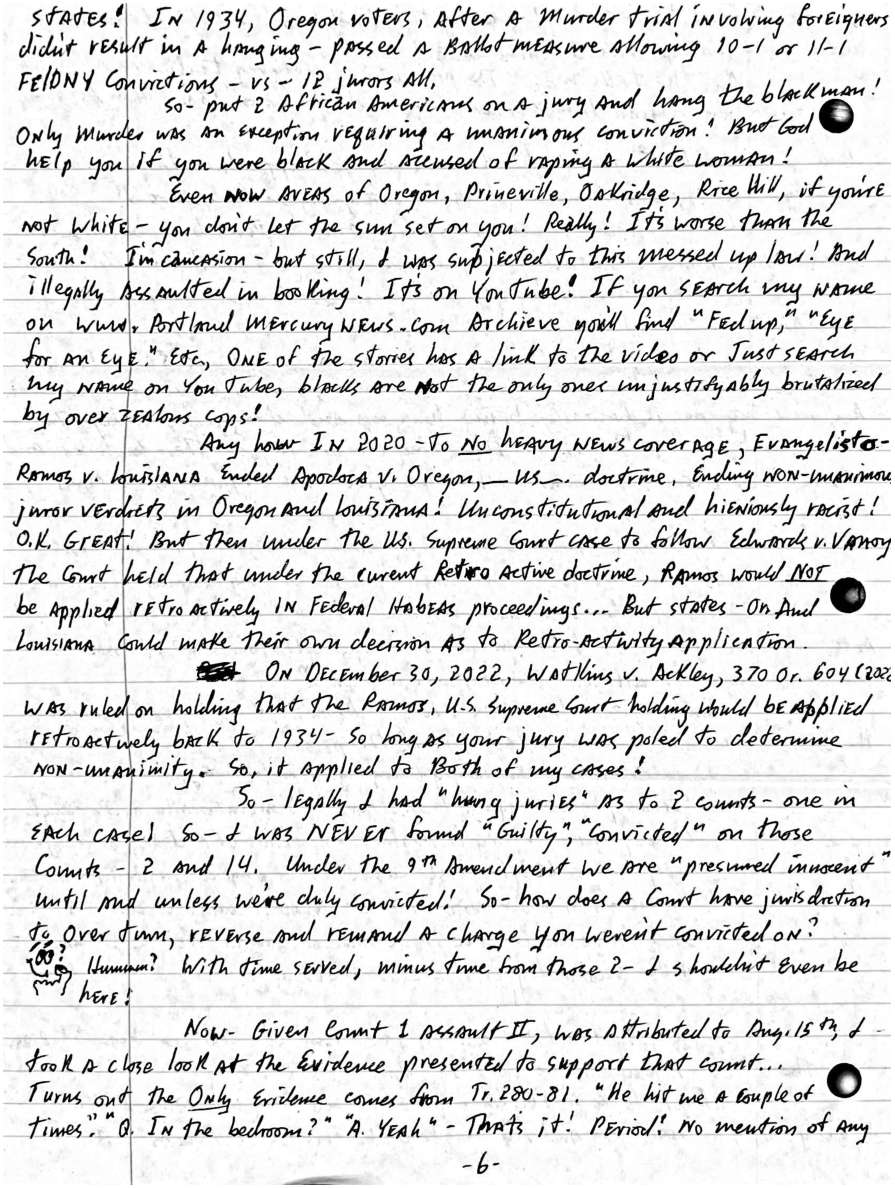 STATES! IN 1934, Oregon voters, After A Murder trial involving foreigners
didn't result in A hanging - passed A Ballot measure Allowing 10-1 or 11-1
FELONY Convictions - vs - 12 jurors All.
So - put 2 African Americans on A jury And hang the black man!
Only Murder was an exception requiring A unanimous conviction! But God
help you if you were black And Accused of raping A white woman!
Even NOW AREAS of Oregon, Prineville, Oakridge, Rice Hill, if you're
not white - you don't let the sun set on you! Really! It's worse than the
South! I'm caucasion - but still, I was subjected to this messed up law! And
illegally Assaulted in booking! It's on YouTube! If you SEARCH my NAME
on www. Portland Mercury News.com Archieve you'll find "Fed up," "Eye
for an Eye." Etc, ONE of the stories has A link to the video or Just SEARCH
my NAME on YouTube, blacks are Not the only ones unjustifyably brutalized
by over ZEALOUS cops!
Any how IN 2020 - To No heavy NEWS coverage, Evangelisto-
Ramos v. Louisiana Ended Apodoca v. Oregon, _ US _. doctrine, Ending NON-unanimous
juror VERdicts in Oregon And Louisiana! Unconstitutional And hieniously racist!
O.K. GREAT! But then under the U.S. Supreme Court case to follow Edwards v. Vannoy
the Court held that under the curent Retro Active doctrine, Ramos would NOT
be Applied retroactively IN Federal Habeas proceedings... But states - Or. And
Louisiana Could make their own decision As to Retro-Activity Application.
ON December 30, 2022, Watkins v. Ackley, 370 Or. 604 (202
WAS ruled on holding that the Ramos, U.S. Supreme Court holding would be Applied
retroactively back to 1934 - So long as your jury was poled to determine
NON-unanimity. So, it Applied to Both of my cases!
So - legally I had "hung juries" As to 2 counts - one in
EACH case! So - I WAS NEVER found "Guilty", "Convicted" on those
Counts - 2 and 14. Under the 9th Amendment we are "presumed innocent"
until and unless we're duly convicted! So - how does A Court have jurisdiction
to Over turn, reverse and remand A charge you weren't convicted on?
Hummm? With time served, minus time from those 2 - I shouldn't Even be
here!
Now - Given Count 1 Assault II, was Attributed to Aug. 15th, I -
took A close look At the Evidence presented to support that count...
Turns out the Only Evidence comes from Tr. 280-81. "He hit me A couple of
times." "Q. IN the bedroom?" "A. Yeah" - That's it! Period! No mention of Any
-6-